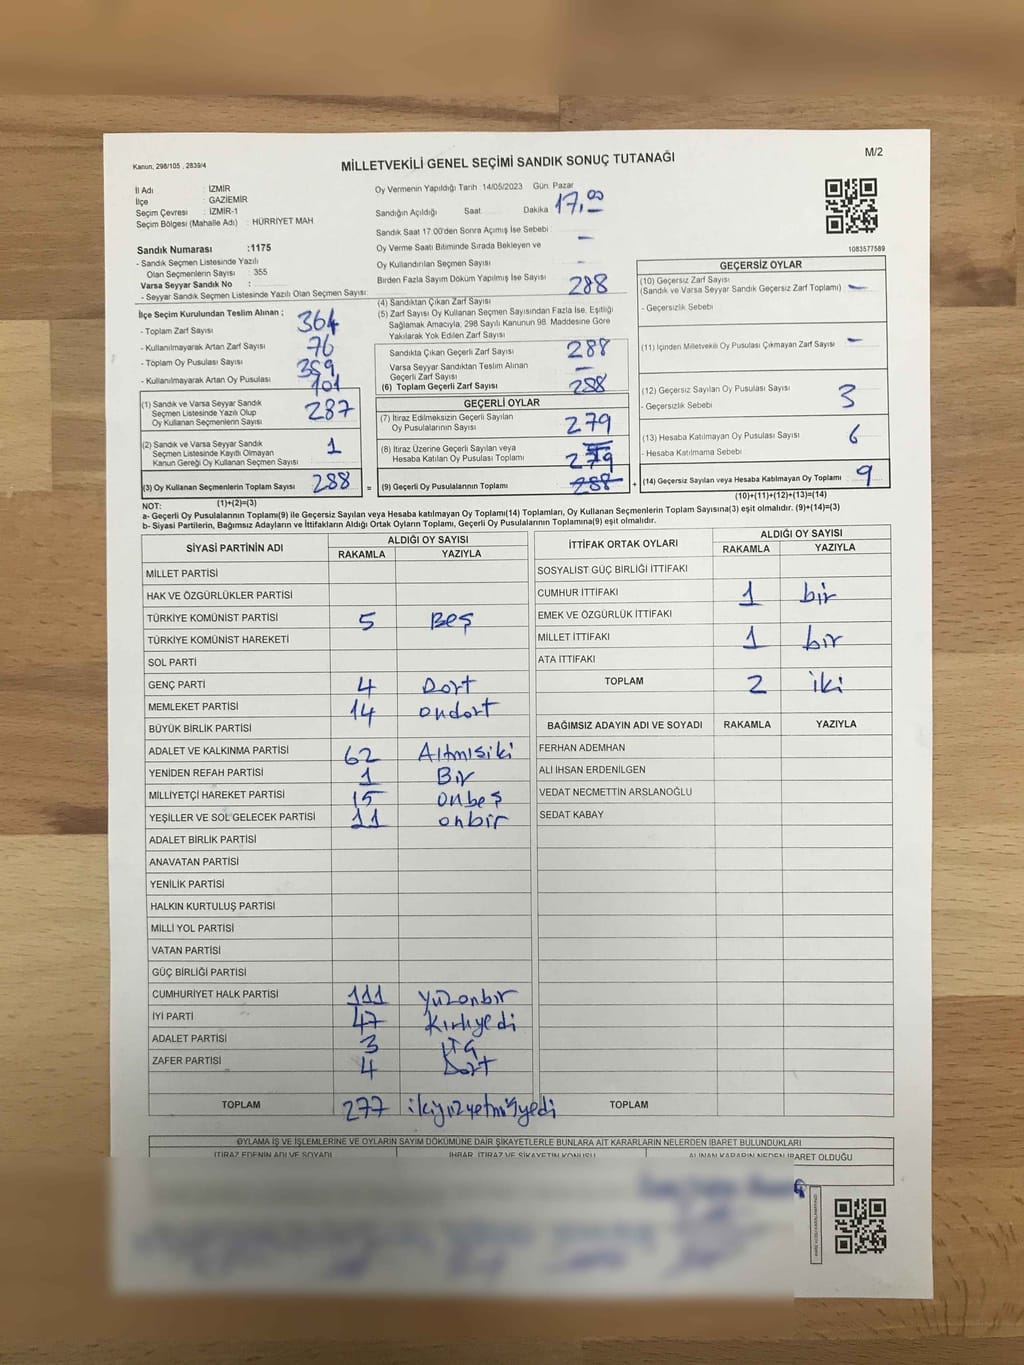 Kanun, 298/105 , 2839/4
MİLLETVEKİLİ GENEL SEÇİMİ SANDIK SONUÇ TUTANAĞI
M/2
İl Adı : İZMİR
İlçe : GAZİEMİR
Seçim Çevresi : İZMİR-1
Seçim Bölgesi (Mahalle Adı) : HÜRRİYET MAH
Sandık Numarası :1175
- Sandık Seçmen Listesinde Yazılı
Olan Seçmenlerin Sayısı : 355
Varsa Seyyar Sandık No :
- Seyyar Sandık Seçmen Listesinde Yazılı Olan Seçmen Sayısı:
İlçe Seçim Kurulundan Teslim Alınan ;
- Toplam Zarf Sayısı 364
- Kullanılmayarak Artan Zarf Sayısı 76
- Toplam Oy Pusulası Sayısı
- Kullanılmayarak Artan Oy Pusulası 101
(1) Sandık ve Varsa Seyyar Sandık
Seçmen Listesinde Yazılı Olup
Oy Kullanan Seçmenlerin Sayısı 287
(2) Sandık ve Varsa Seyyar Sandık
Seçmen Listesinde Kaydı Olmayan
Kanun Gereği Oy Kullanan Seçmen Sayısı 1
(3) Oy Kullanan Seçmenlerin Toplam Sayısı 288 =
(1)+(2)=(3)
Oy Vermenin Yapıldığı Tarih 14/05/2023 Gün. Pazar
Sandığın Açıldığı Saat Dakika 17,00
Sandık Saat 17:00'den Sonra Açımış İse Sebebi -
Oy Verme Saati Bitiminde Sırada Bekleyen ve
Oy Kullandırılan Seçmen Sayısı -
Birden Fazla Sayım Döküm Yapılmış İse Sayısı
(4) Sandıktan Çıkan Zarf Sayısı 288
(5) Zarf Sayısı Oy Kullanan Seçmen Sayısından Fazla İse, Eşitliği
Sağlamak Amacıyla, 298 Sayılı Kanunun 98. Maddesine Göre
Yakılarak Yok Edilen Zarf Sayısı
Sandıkta Çıkan Geçerli Zarf Sayısı 288
Varsa Seyyar Sandıktan Teslim Alınan
Geçerli Zarf Sayısı -
(6) Toplam Geçerli Zarf Sayısı 288
GEÇERLİ OYLAR
(7) İtiraz Edilmeksizin Geçerli Sayılan
Oy Pusulalarının Sayısı 279
(8) İtiraz Üzerine Geçerli Sayılan veya
Hesaba Katılan Oy Pusulası Toplamı
279
(9) Geçerli Oy Pusulalarının Toplamı 288 +
1083577589
GEÇERSİZ OYLAR
(10) Geçersiz Zarf Sayısı
(Sandık ve Varsa Seyyar Sandık Geçersiz Zarf Toplamı) -
- Geçersizlik Sebebi
(11) İçinden Milletvekili Oy Pusulası Çıkmayan Zarf Sayısı -
(12) Geçersiz Sayılan Oy Pusulası Sayısı 3
- Geçersizlik Sebebi
(13) Hesaba Katılmayan Oy Pusulası Sayısı 6
- Hesaba Katılmama Sebebi
(14) Geçersiz Sayılan veya Hesaba Katılmayan Oy Toplamı 9
(10)+(11)+(12)+(13)=(14)
NOT:
a- Geçerli Oy Pusulalarının Toplamı(9) ile Geçersiz Sayılan veya Hesaba Katılmayan Oy Toplamı(14) Toplamları, Oy Kullanan Seçmenlerin Toplam Sayısına(3) eşit olmalıdır. (9)+(14)=(3)
b- Siyasi Partilerin, Bağımsız Adayların ve İttifakların Aldığı Ortak Oyların Toplamı, Geçerli Oy Pusulalarının Toplamına(9) eşit olmalıdır.
SİYASİ PARTİNİN ADI ALDIĞI OY SAYISI
RAKAMLA YAZIYLA
MİLLET PARTİSİ
HAK VE ÖZGÜRLÜKLER PARTİSİ
TÜRKİYE KOMÜNİST PARTİSİ 5 Beş
TÜRKİYE KOMÜNİST HAREKETİ
SOL PARTİ
GENÇ PARTİ 4 Dort
MEMLEKET PARTİSİ 14 ondort
BÜYÜK BİRLİK PARTİSİ
ADALET VE KALKINMA PARTİSİ 62 Altmısiki
YENİDEN REFAH PARTİSİ 1 Bir
MİLLİYETÇİ HAREKET PARTİSİ 15 onbeş
YEŞİLLER VE SOL GELECEK PARTİSİ 11 onbir
ADALET BİRLİK PARTİSİ
ANAVATAN PARTİSİ
YENİLİK PARTİSİ
HALKIN KURTULUŞ PARTİSİ
MİLLİ YOL PARTİSİ
VATAN PARTİSİ
GÜÇ BİRLİĞİ PARTİSİ
CUMHURİYET HALK PARTİSİ 111 Yüzonbir
İYİ PARTİ 47 Kırkyedi
ADALET PARTİSİ 3
ZAFER PARTİSİ 4 Dort
TOPLAM 277 ikiyüzyetmişyedi
İTTİFAK ORTAK OYLARI ALDIĞI OY SAYISI
RAKAMLA YAZIYLA
SOSYALIST GÜÇ BİRLİĞİ İTTİFAKI
CUMHUR İTTİFAKI 1 bir
EMEK VE ÖZGÜRLÜK İTTİFAKI
MİLLET İTTİFAKI 1 bir
ATA İTTİFAKI
TOPLAM 2 iki
BAĞIMSIZ ADAYIN ADI VE SOYADI RAKAMLA YAZIYLA
FERHAN ADEMHAN
ALİ İHSAN ERDENİLGEN
VEDAT NECMETTİN ARSLANOĞLU
SEDAT KABAY
TOPLAM
OYLAMA İŞ VE İŞLEMLERİNE VE OYLARIN SAYIM DÖKÜMÜNE DAİR ŞİKAYETLERLE BUNLARA AİT KARARLARIN NELERDEN İBARET BULUNDUKLARI
İTİRAZ EDENİN ADI VE SOYADI İHBAR, İTİRAZ VE ŞİKAYETİN KONUSU ALINAN KARARIN NEDEN İBARET OLDUĞU